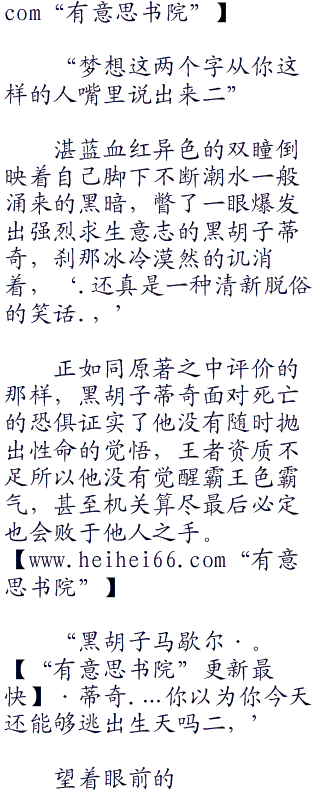 com“有意思书院”】
“梦想这两个字从你这
样的人嘴里说出来二”
湛蓝血红异色的双瞳倒
映着自己脚下不断潮水一般
涌来的黑暗，瞥了一眼爆发
出强烈求生意志的黑胡子蒂
奇，刹那冰冷漠然的讥消
着，‘.还真是一种清新脱俗
的笑话.，’
正如同原著之中评价的
那样，黑胡子蒂奇面对死亡
的恐俱证实了他没有随时抛
出性命的觉悟，王者资质不
足所以他没有觉醒霸王色霸
气，甚至机关算尽最后必定
也会败于他人之手。
【www.heihei66.com“有意
思书院”】
“黑胡子马歇尔·。
【“有意思书院”更新最
快】·蒂奇.…你以为你今天
还能够逃出生天吗二，’
望着眼前的